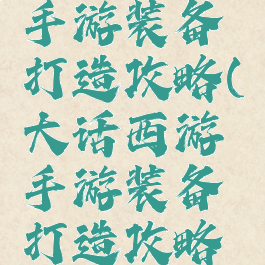 手游装备
打造攻略(
大话西游
手游装备
打造攻略